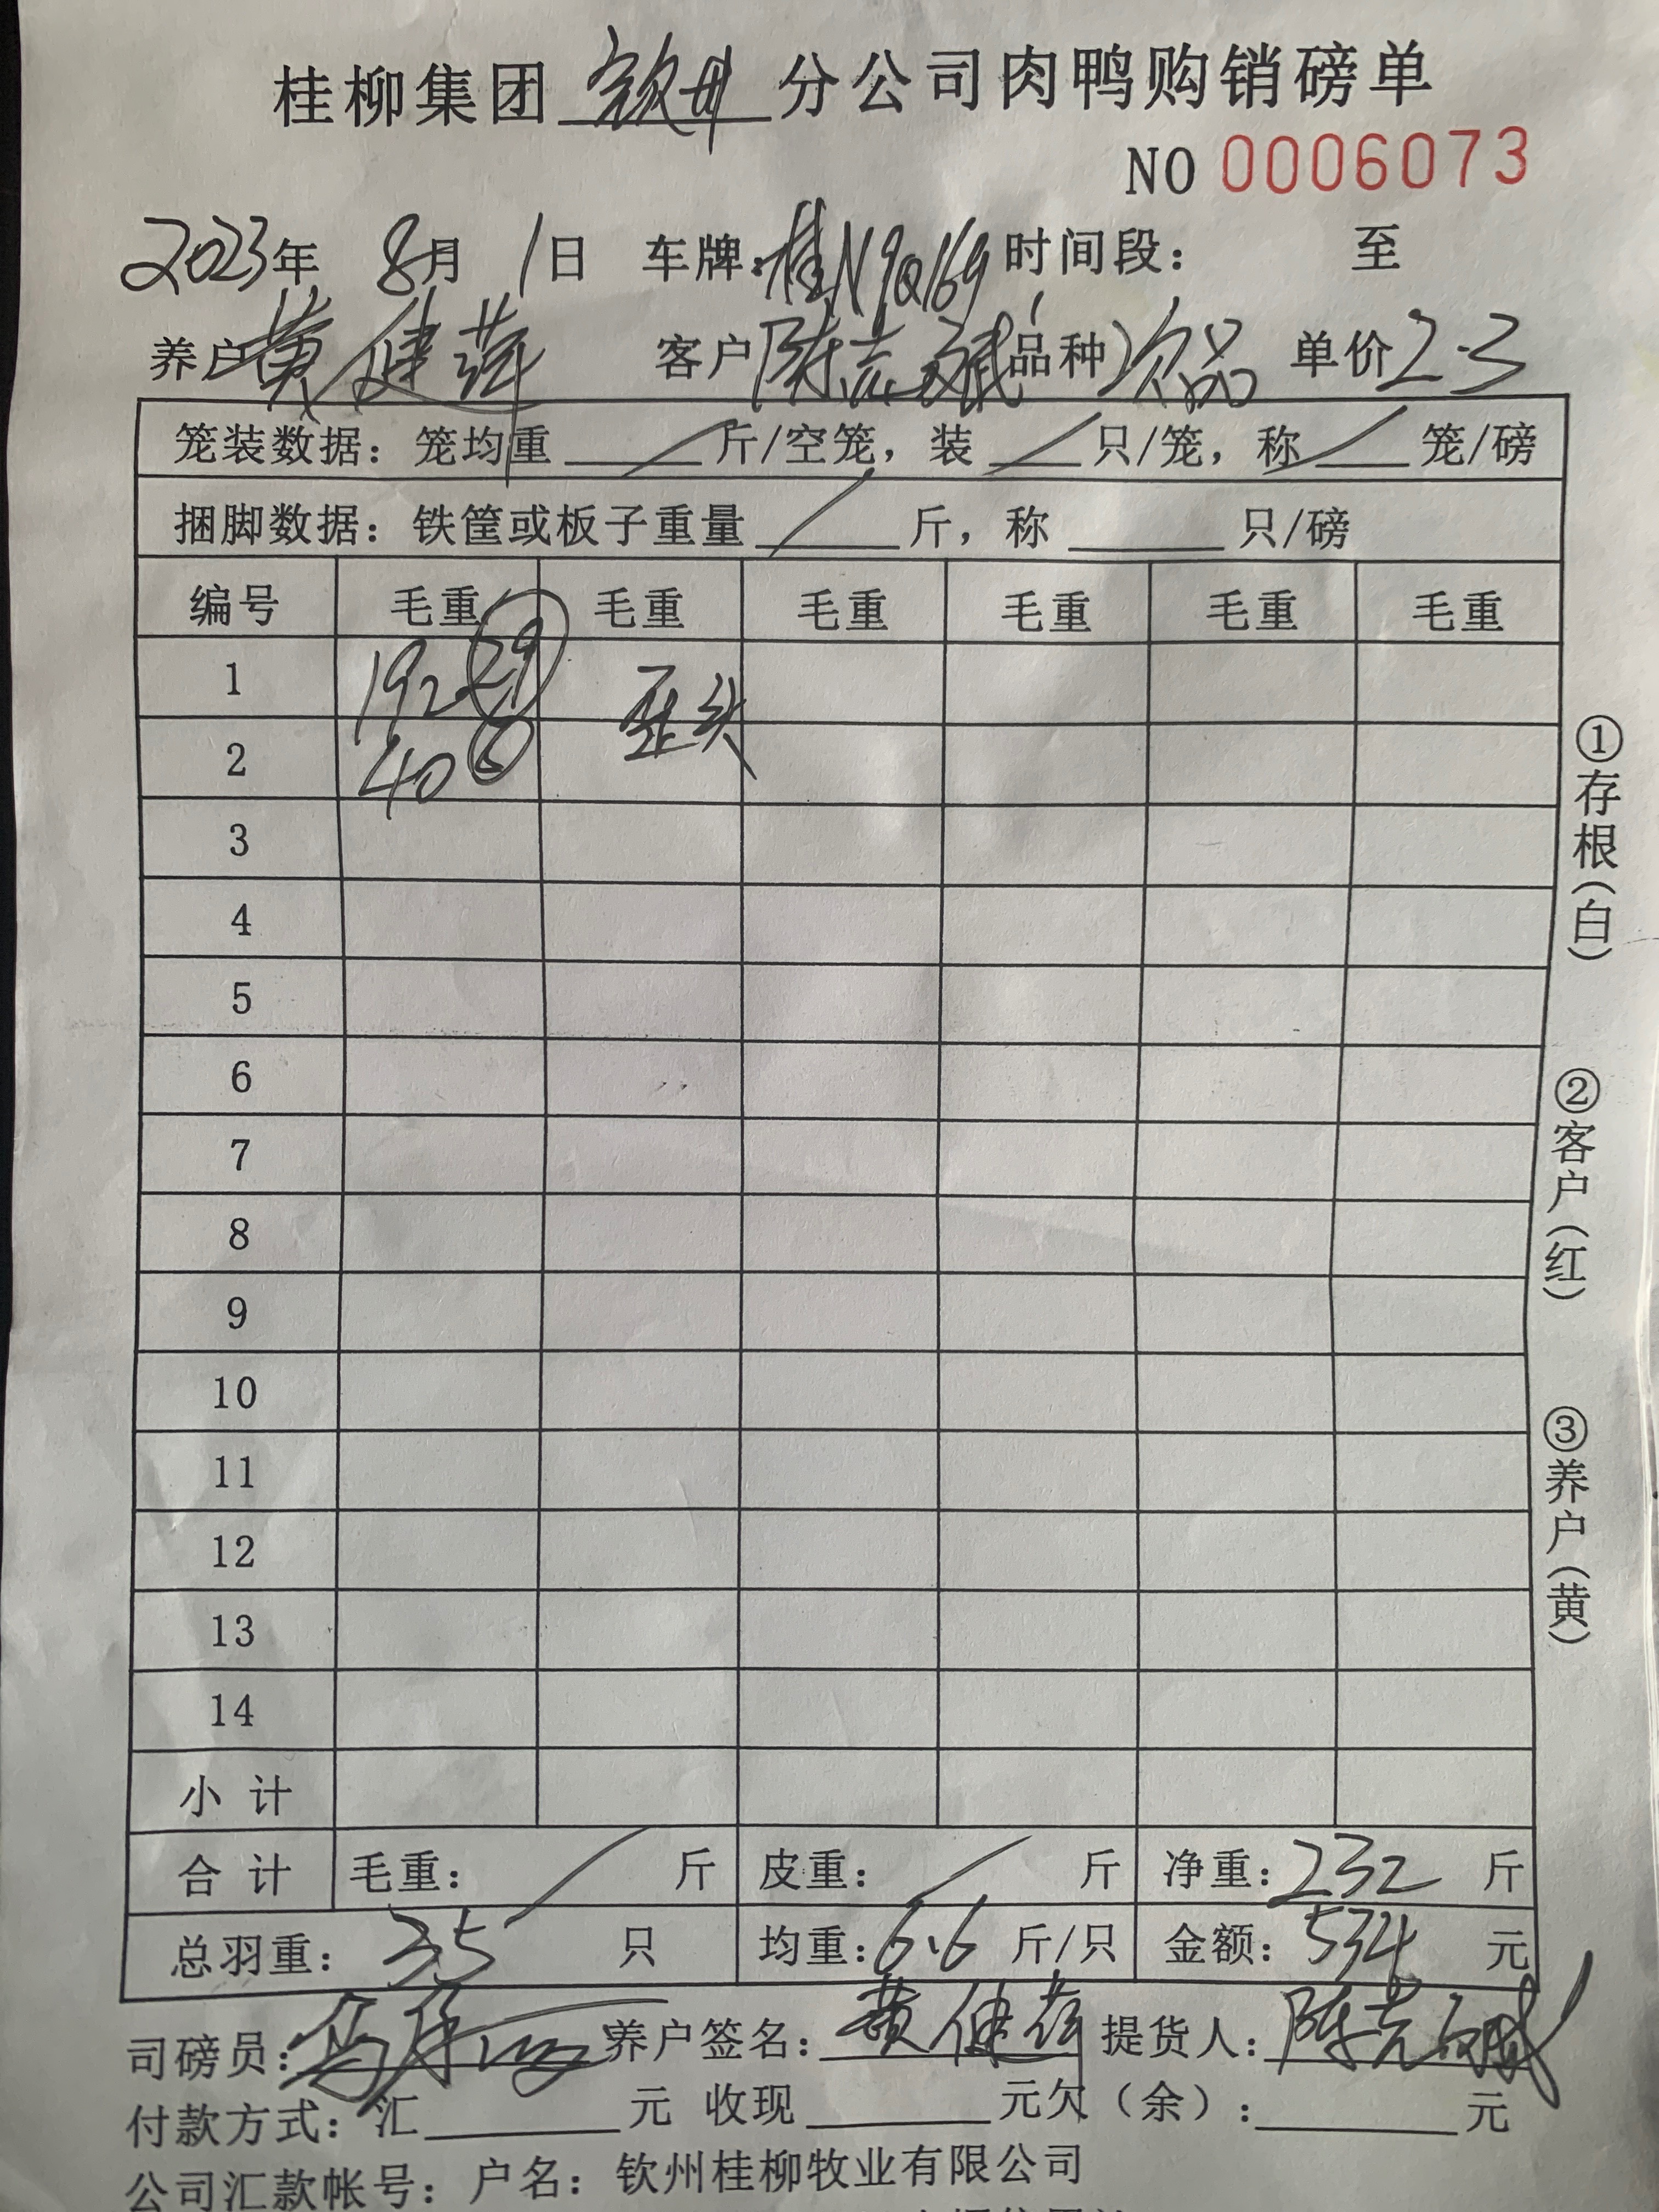 桂柳集团 钦州 分公司肉鸭购销磅单
NO 0006073
2023年 8月 1日 车牌:桂N9Q169 时间段: 至
养户 黄健 客户 陈志斌 品种 次品 单价 2.3
笼装数据:笼均重 / 斤/空笼,装 / 只/笼,称 / 笼/磅
捆脚数据:铁筐或板子重量 / 斤,称 只/磅
编号 毛重 毛重 毛重 毛重 毛重 毛重
1 192 29 歪头
2 40 6
3
4
5
6
7
8
9
10
11
12
13
14
小计
合计 毛重: / 斤 皮重: / 斤 净重:232 斤
总羽重:35 只 均重:6.6 斤/只 金额:534 元
司磅员: 养户签名:黄健 提货人:陈志斌
付款方式:汇 元 收现 元欠(余): 元
公司汇款帐号:户名:钦州桂柳牧业有限公司
①存根(白)
②客户(红)
③养户(黄)